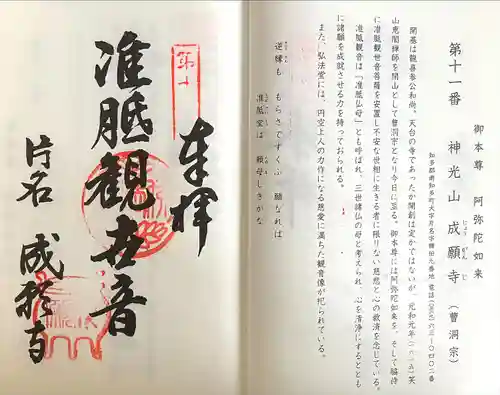 第十一番 神光山 成願寺 (曹洞宗)
じょうがんじ
御本尊 阿弥陀如来
開基は龍喜参公和尚。天台の寺であったか開創は定かではないが、元和元年(一六一五)笑
山恵聞禅師を開山として曹洞宗となり今日に至る。御本尊には阿弥陀如来を、そして脇侍
に准胝観世音菩薩を安置し不安な世相に生きる者に限りない慈悲と心の救済を念じている。
准胝観音は「准胝仏母」とも呼ばれ、三世諸仏の母と考えられ、心を清浄にするととも
に諸願を成就させる力を持っておられる。
また、弘法堂には、円空上人の力作になる慈愛に満ちた観音像が祀られている。
逆縁も もらさですくふ 願なれば
准胝堂は 頼母しきかな
奉拝
准胝観世音
片名 成願寺